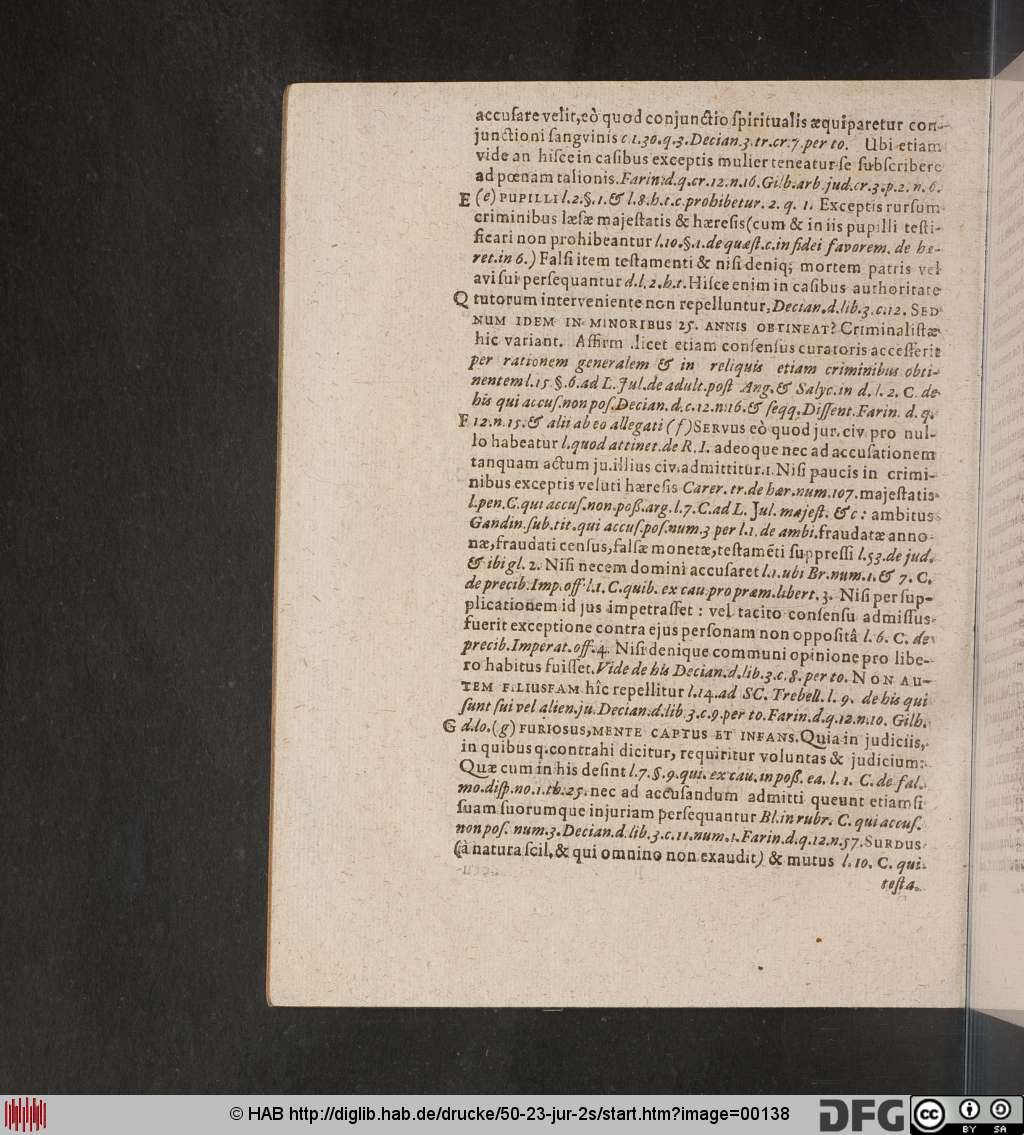 accusare velit, eò quod conjunctio spiritualis æquiparetur con-
junctioni sangvinis c 1.30.q.3. Decian.3.tr.cr.7.per to. Ubi etiam
vide an hisce in casibus exceptis mulier teneatur se subscribere
ad pœnam talionis. Farin.d.q.cr.12.n.16. Gilb.arb.jud.cr.3.p.2.n.6.
E (e) PUPILLI l.2.§.1.& l.8.h.t.c.prohibetur. 2. q. 1. Exceptis rursum
criminibus læsæ majestatis & hæresis (cum & in iis pupilli testi-
ficari non prohibeantur l.10.§.1.de quæst.c.in fidei favorem. de hæ-
ret.in 6.) Falsi item testamenti & nisi deniq; mortem patris vel
avi sui persequantur d.l.2.h.t. Hisce enim in casibus authoritate
Q tutorum interveniente non repelluntur, Decian.d.lib.3.c.12. SED
NUM IDEM IN MINORIBUS 25. ANNIS OBTINEAT? Criminalistæ
hic variant. Affirm. licet etiam consensus curatoris accesserit
per rationem generalem & in reliquis etiam criminibus obti-
nentem l.15.§.6.ad L. Jul.de adult.post Ang.& Salyc.in d.l.2. C. de
his qui accus.non pos. Decian.d.c.12.n.16.& seqq. Dissent. Farin. d. q.
F 12.n.15.& alii ab eo allegati (f) SERVUS eò quod jur. civ. pro nul-
lo habeatur l.quod attinet.de R.I. adeoque nec ad accusationem
tanquam actum ju. illius civ. admittitur. 1. Nisi paucis in crimi-
nibus exceptis veluti hæresis Carer. tr.de hær.num.107. majestatis
l.pen.C.qui accus.non.poß.arg.l.7.C.ad L. Jul. majest. &c: ambitus
Gandin.sub.tit.qui accus.pos.num.3 per l.1.de ambi. fraudatæ anno-
næ, fraudati census, falsæ monetæ, testamēti suppressi l.53.de jud.
& ibi gl. 2. Nisi necem domini accusaret l.1.ubi Br.num.1.& 7. C.
de precib.Imp.off.l.1. C.quib. ex cau.pro præm.libert. 3. Nisi per sup-
plicationem id jus impetrasset: vel tacito consensu admissus
fuerit exceptione contra ejus personam non oppositâ l. 6. C. de
precib.Imperat.off. 4. Nisi denique communi opinione pro libe-
ro habitus fuisset. Vide de his Decian.d.lib.3.c.8.per to. NON AU-
TEM FILIUSFAM hîc repellitur l.14.ad SC. Trebell. l. 9. de his qui
sunt sui vel alien.ju. Decian.d.lib 3.c.9.per to. Farin.d.q.12.n.10. Gilb.
G d.lo. (g) FURIOSUS, MENTE CAPTUS ET INFANS. Quia in judiciis,
in quibus q. contrahi dicitur, requiritur voluntas & judicium:
Quæ cum in his desint l.7.§.9.qui. ex cau.in poß. ea. l. 1. C. de fal.
mo.disp.no.1.th.25. nec ad accusandum admitti queunt etiamsi
suam suorumque injuriam persequantur Bl.in rubr. C. qui accus.
non pos. num.3. Decian.d.lib.3.c.11.num.1. Farin.d.q.12.n.57. SURDUS
(à natura scil. & qui omnino non exaudit) & mutus l. 10. C. qui
testa.
© HAB http://diglib.hab.de/drucke/50-23-jur-2s/start.htm?image=00138
DFG
cc
BY SA